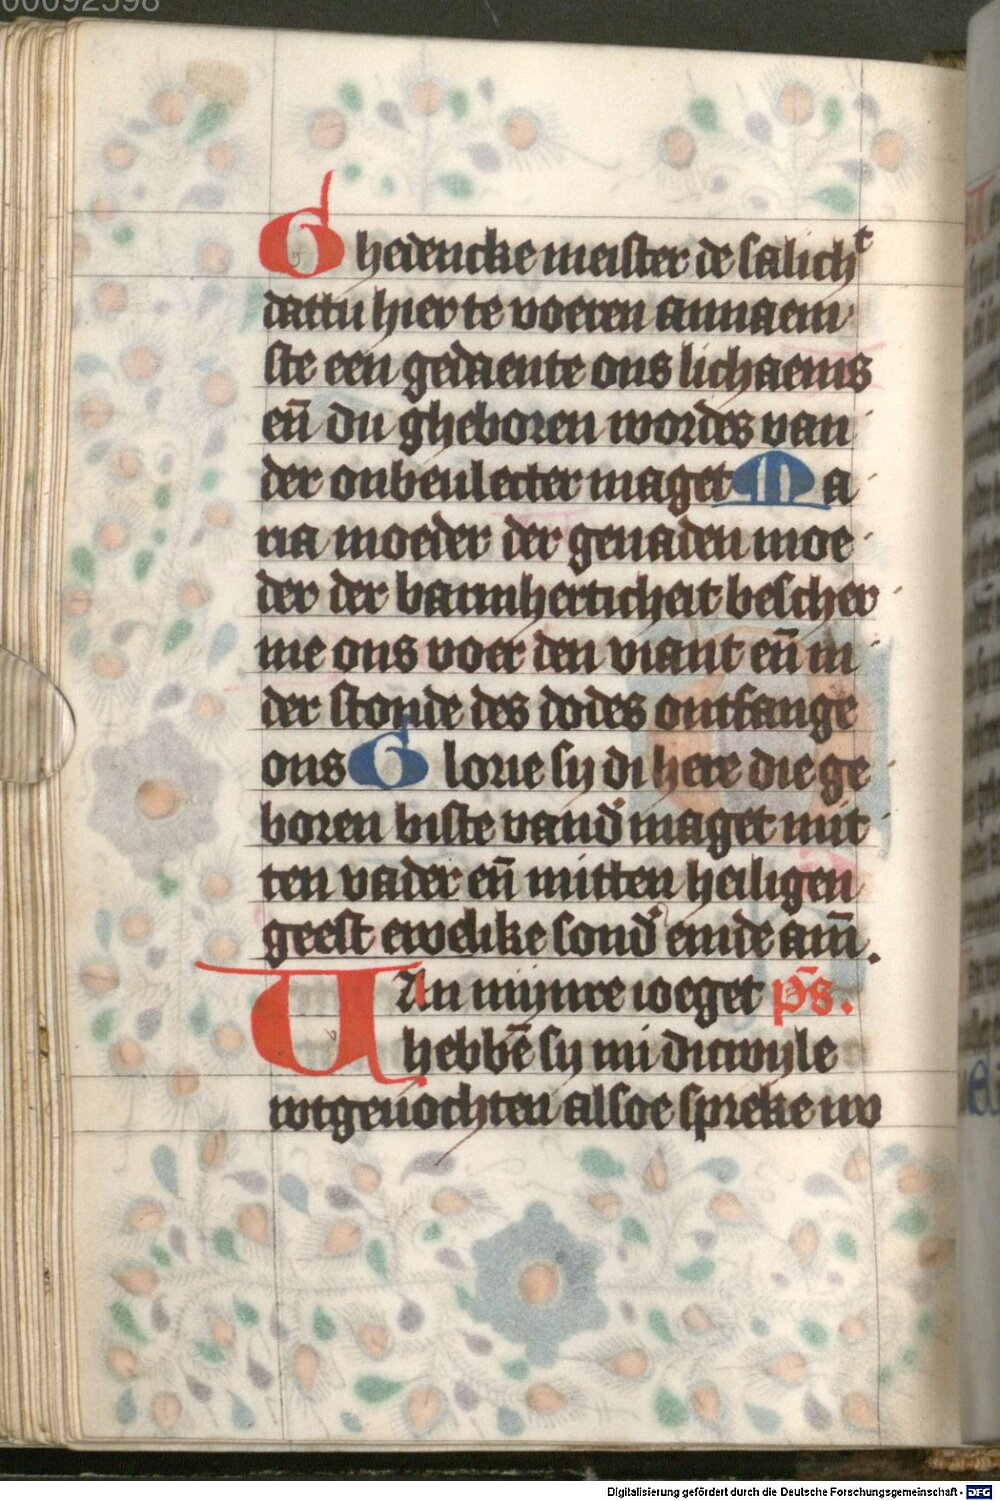 00092598
Ghedencke meister de salich^t
dattu hier te voeren annaem
ste een gedaente ons lichaems
en̄ du gheboren wordes van
der onbeulecter maget Ma
ria moeder der genaden moe
der der barmherticheit bescher
me ons voer den viant en̄ in
der stonde des dodes ontfange
ons Glorie sy di here die ge
boren biste vand̕ maget mit
ten vader en̄ mitten heiligen
geest ewelike sond̕ einde am̄.
Van mijnre ioeget ps̄.
hebbē sy mi dicwyle
wtgeuochten alsoe spreke nv
Digitalisierung gefördert durch die Deutsche Forschungsgemeinschaft - DFG